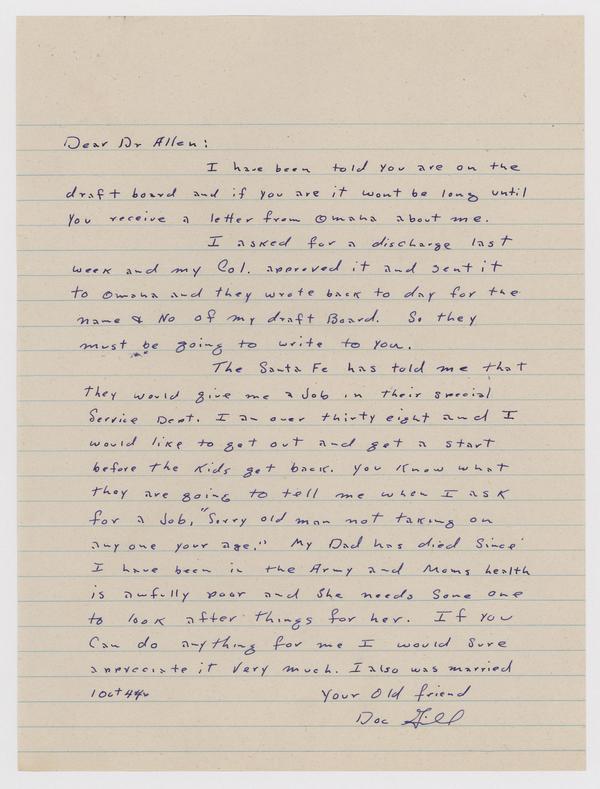 Dear Dr Allen:
I have been told you are on the
draft board and if you are it wont be long until
you receive a letter from Omaha about me.
I asked for a discharge last
week and my Col. approved it and sent it
to Omaha and they wrote back to day for the
name & No of my draft Board. So they
must be going to write to you.
The Santa Fe has told me that
they would give me a Job in their special
Service Dept. I am over thirty eight and I
would like to get out and get a start
before the kids get back. You Know what
they are going to tell me when I ask
for a Job, "Sorry old man not taking on
any one your age." My Dad has died since
I have been in the Army and Moms health
is awfully poor and she needs some one
to look after things for her. If you
Can do anything for me I would sure
appreciate it Very much. I also was married
1 Oct 44 Your Old friend
Doc Gill